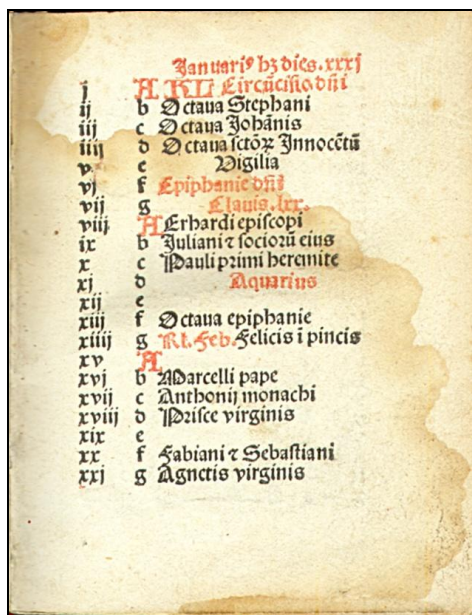 Januariꝰ hꝫ dies. xxxj
j A KL Circũcisio dñi
ij b Octaua Stephani
iij c Octaua Johãnis
iiij d Octaua sctõꝝ Innocẽtũ
v e Vigilia
vj f Epiphanie dñi
vij g Clauis. lxx.
viij A Erhardi episcopi
ix b Juliani ⁊ sociorũ eius
x c Pauli primi heremite
xj d Aquarius
xij e
xiij f Octaua epiphanie
xiiij g Kl. Feb. Felicis ĩ pincis
xv A
xvj b Marcelli pape
xvij c Anthonij monachi
xviij d Prisce virginis
xix e
xx f Fabiani ⁊ Sebastiani
xxj g Agnetis virginis